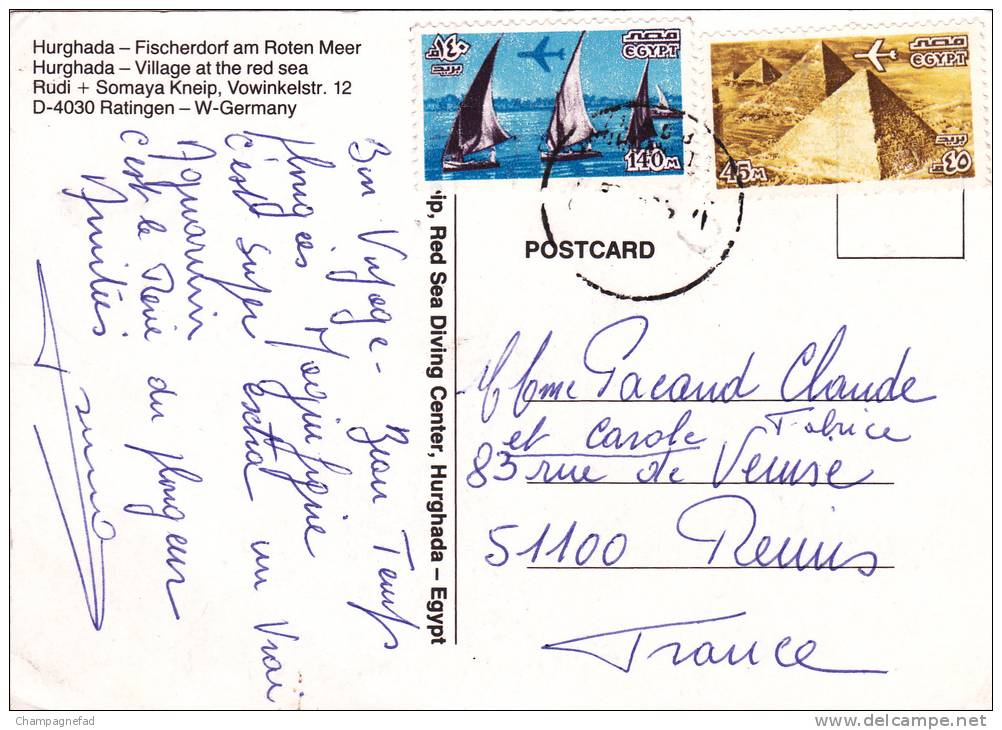 Hurghada – Fischerdorf am Roten Meer
Hurghada – Village at the red sea
Rudi + Somaya Kneip, Vowinkelstr. 12
D-4030 Ratingen – W-Germany
Bon Voyage – Beau Temps
Plongées Magnifique
C'est Super extra un Vrai
Aquarium
C'est le Rêve du plongeur
Amitiés
ip, Red Sea Diving Center, Hurghada – Egypt
١٤٠
مصر
EGYPT
بريد
140 M
مصر
EGYPT
بريد
45 M
٤٥
POSTCARD
M Mme Pacaud Claude
et Carole Fabrice
83 rue de Venise
51100 Reims
France
Champagnefad
delcampe.net